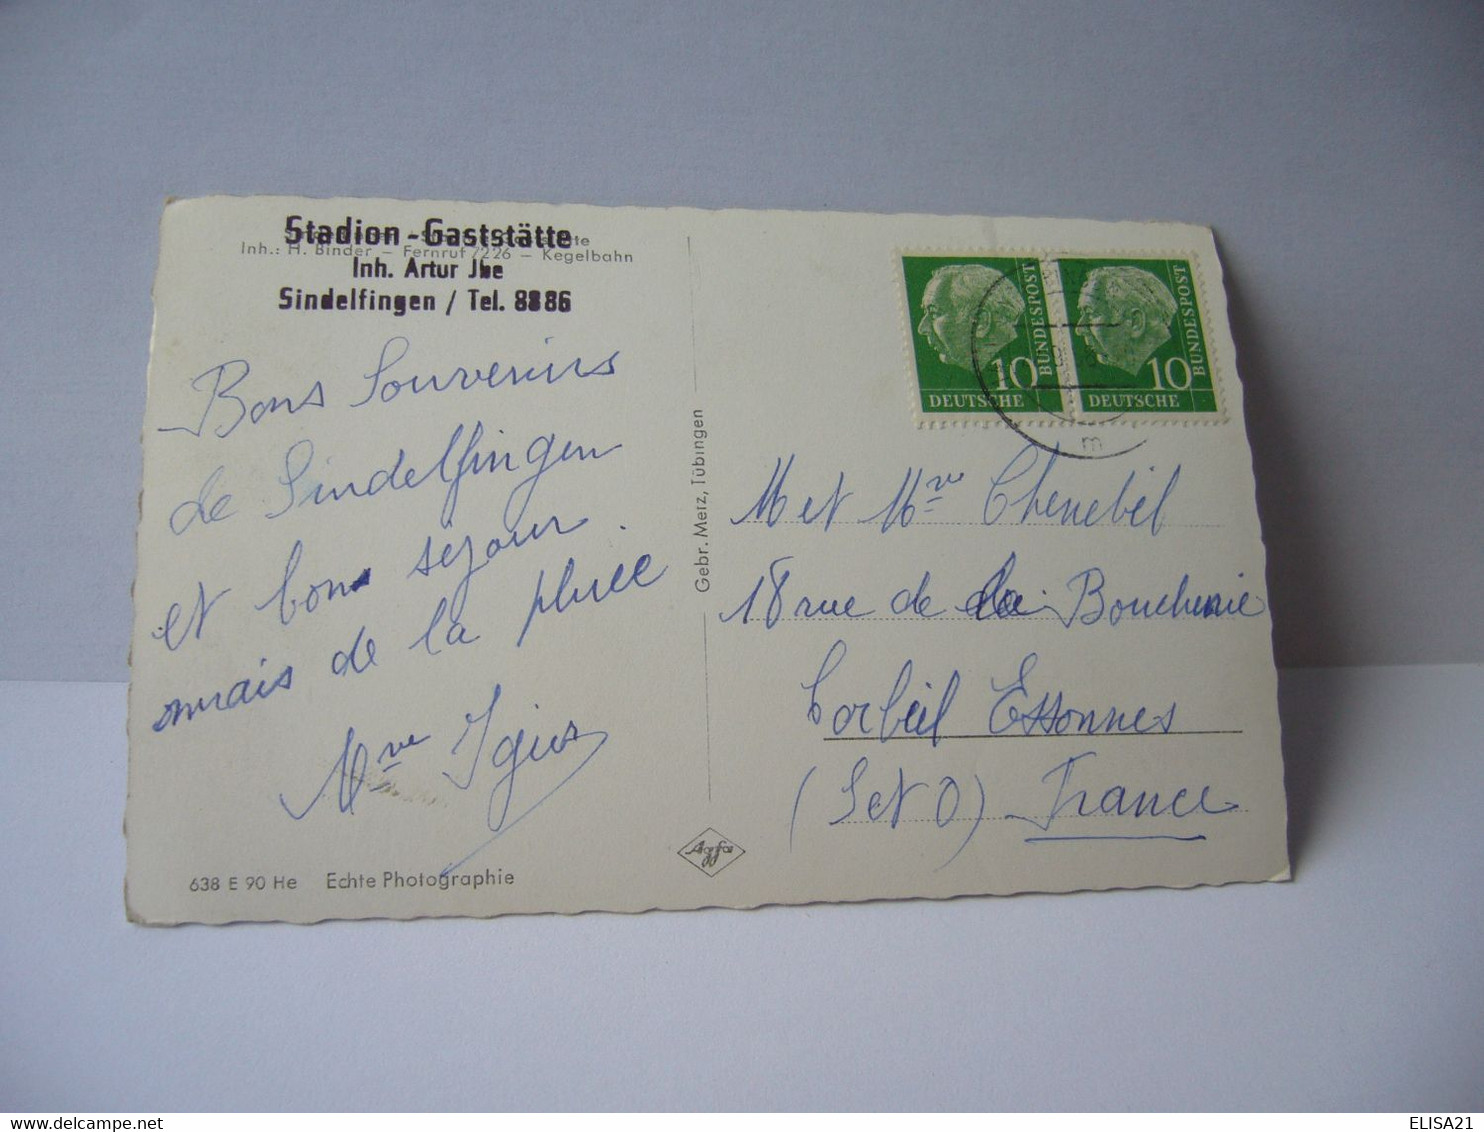 Stadion-Gaststätte
Inh.: H. Binder – Fernruf 7226 – Kegelbahn
Inh. Artur Jbe
Sindelfingen / Tel. 8886
Bons Souvenirs
de Sindelfingen
et bons séjour.
mais de la pluie
Mme
638 E 90 He Echte Photographie
Gebr. Metz, Tübingen
Agfa
10 BUNDESPOST
DEUTSCHE
10 BUNDESPOST
DEUTSCHE
m
M et Mme Chenebil
18 rue de la Boucherie
Corbeil Essonnes
(S et O) France
DELCAMPE.NET
ELISA21